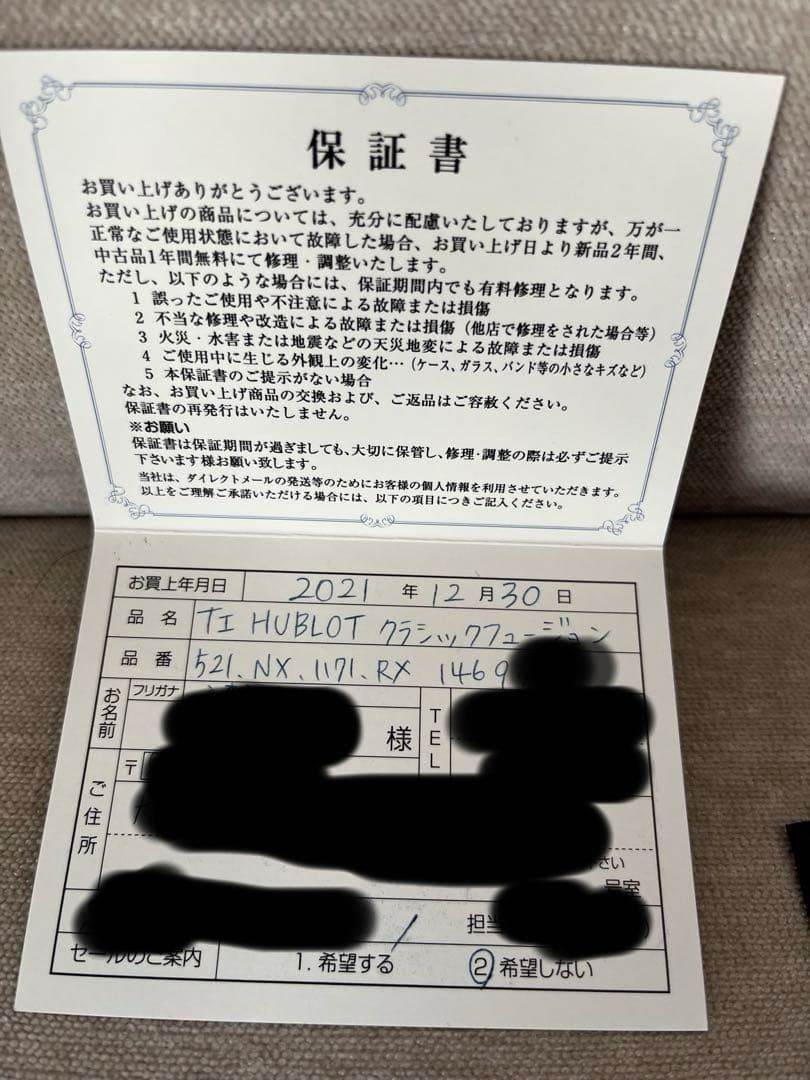 保証書
お買い上げありがとうございます。
お買い上げの商品については、充分に配慮いたしておりますが、万が一
正常なご使用状態において故障した場合、お買い上げ日より新品2年間、
中古品1年間無料にて修理・調整いたします。
ただし、以下のような場合には、保証期間内でも有料修理となります。
1 誤ったご使用や不注意による故障または損傷
2 不当な修理や改造による故障または損傷（他店で修理をされた場合等）
3 火災・水害または地震などの天災地変による故障または損傷
4 ご使用中に生じる外観上の変化…（ケース、ガラス、バンド等の小さなキズなど）
5 本保証書のご提示がない場合
なお、お買い上げ商品の交換および、ご返品はご容赦ください。
保証書の再発行はいたしません。
※お願い
保証書は保証期間が過ぎましても、大切に保管し、修理・調整の際は必ずご提示
下さいます様お願い致します。
当社は、ダイレクトメールの発送等のためにお客様の個人情報を利用させていただきます。
以上をご理解ご承諾いただける場合には、以下の項目につきご記入ください。
お買上年月日 2021 年 12 月 30 日
品名 TI HUBLOT クラシックフュージョン
品番 521.NX.1171.RX 1469
フリガナ
お名前 様 TEL
〒
ご住所
さい
号室
担当
セールのご案内 1. 希望する ② 希望しない